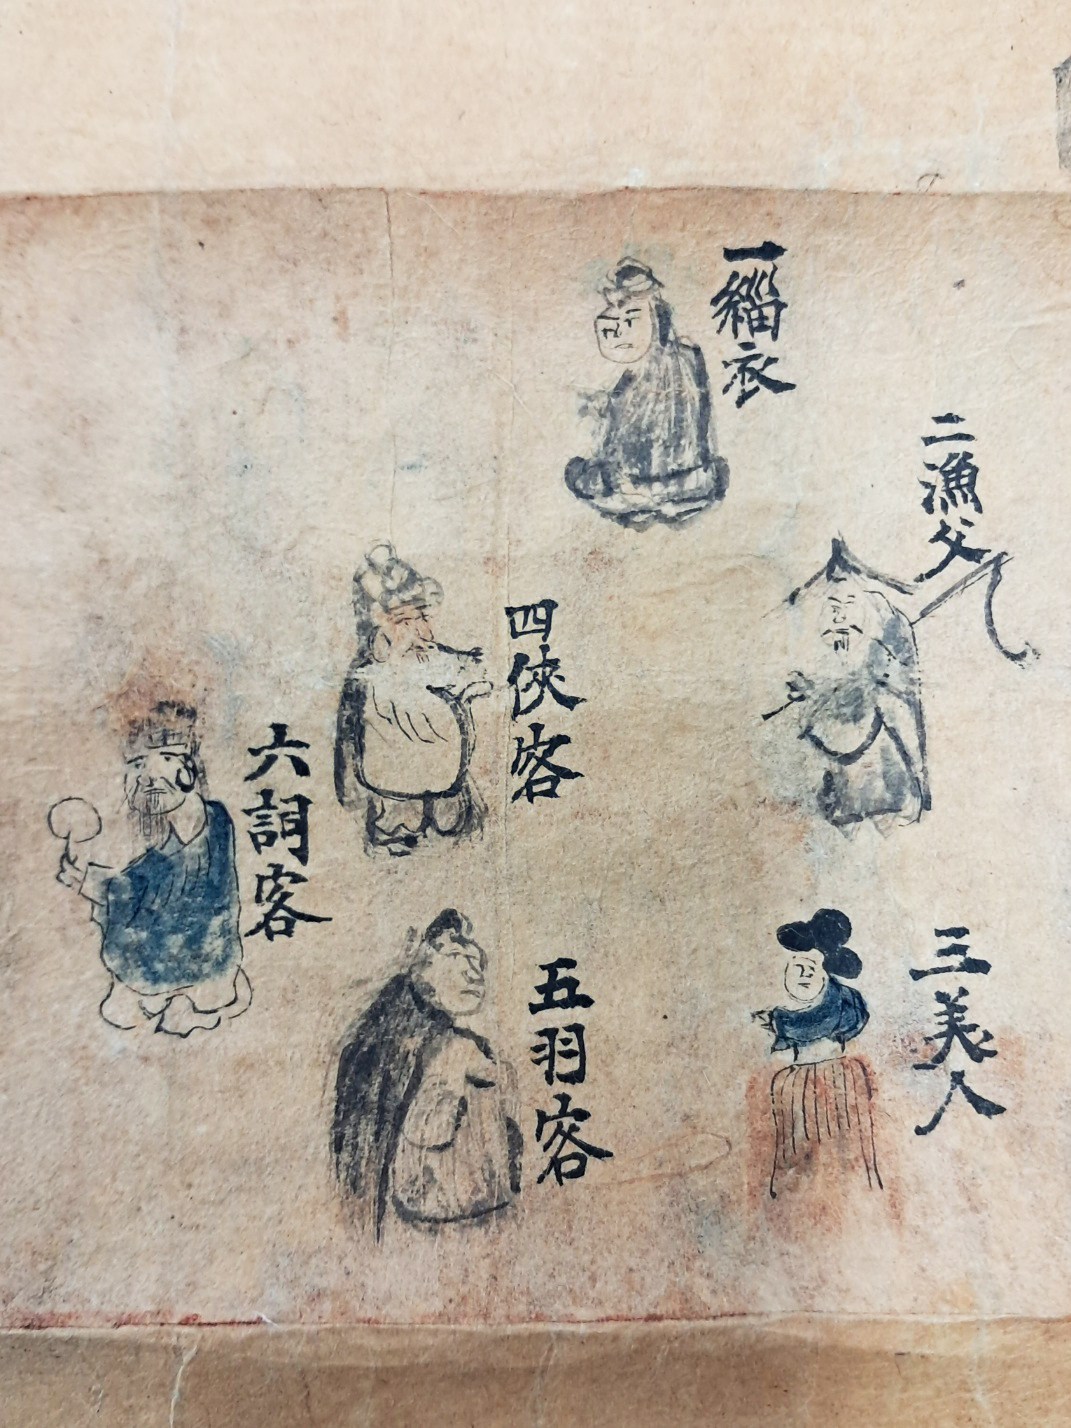 一緇衣
二漁父
三美人
四俠客
五羽客
六詞客